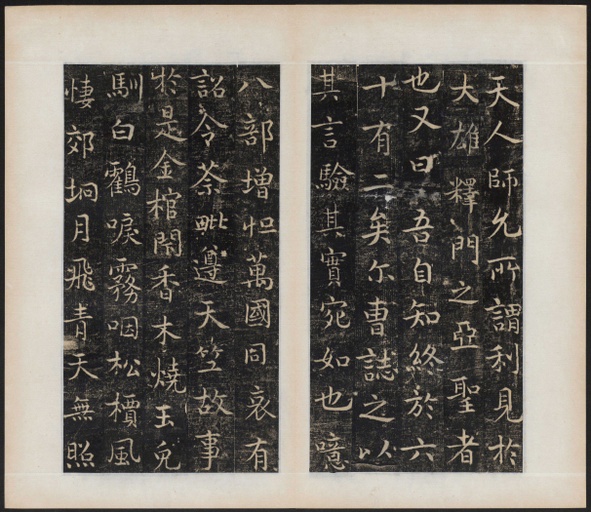 天人師允所謂利見於
大雄釋門之亞聖者
也又曰吾自知終於六
十有二矣尔曹誌之以
其言驗其實宛如也噫
八部增怛萬國同哀有
詔令荼毗遵天竺故事
於是金棺閇香木燒玉兔
馴白鶴唳霧咽松檟風
悽郊坰月飛青天無照